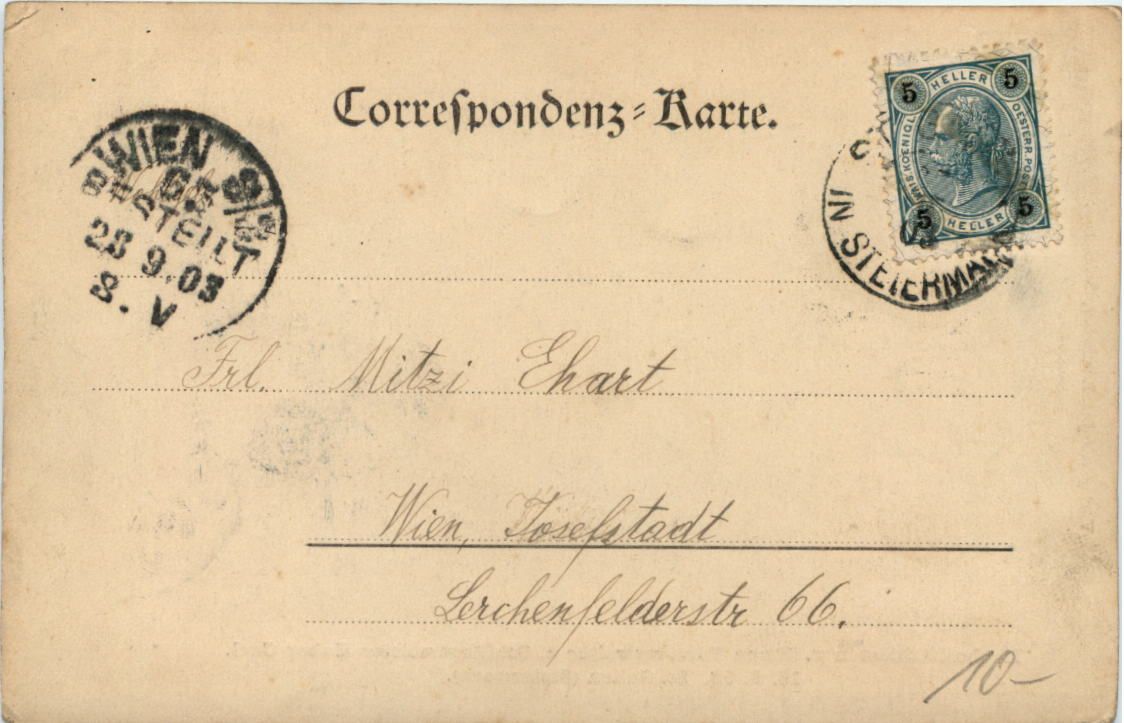 Correspondenz-Karte.
5 HELLER 5
KAIS.KOENIGL.
OESTERR. POST
5 HELLER 5
IN STEIERMARK
03
WIEN 8/1
BESTELLT
28 9.03
8. V
Frl. Mitzi Ehart
Wien, Josefstadt
Lerchenfelderstr 66.
10-